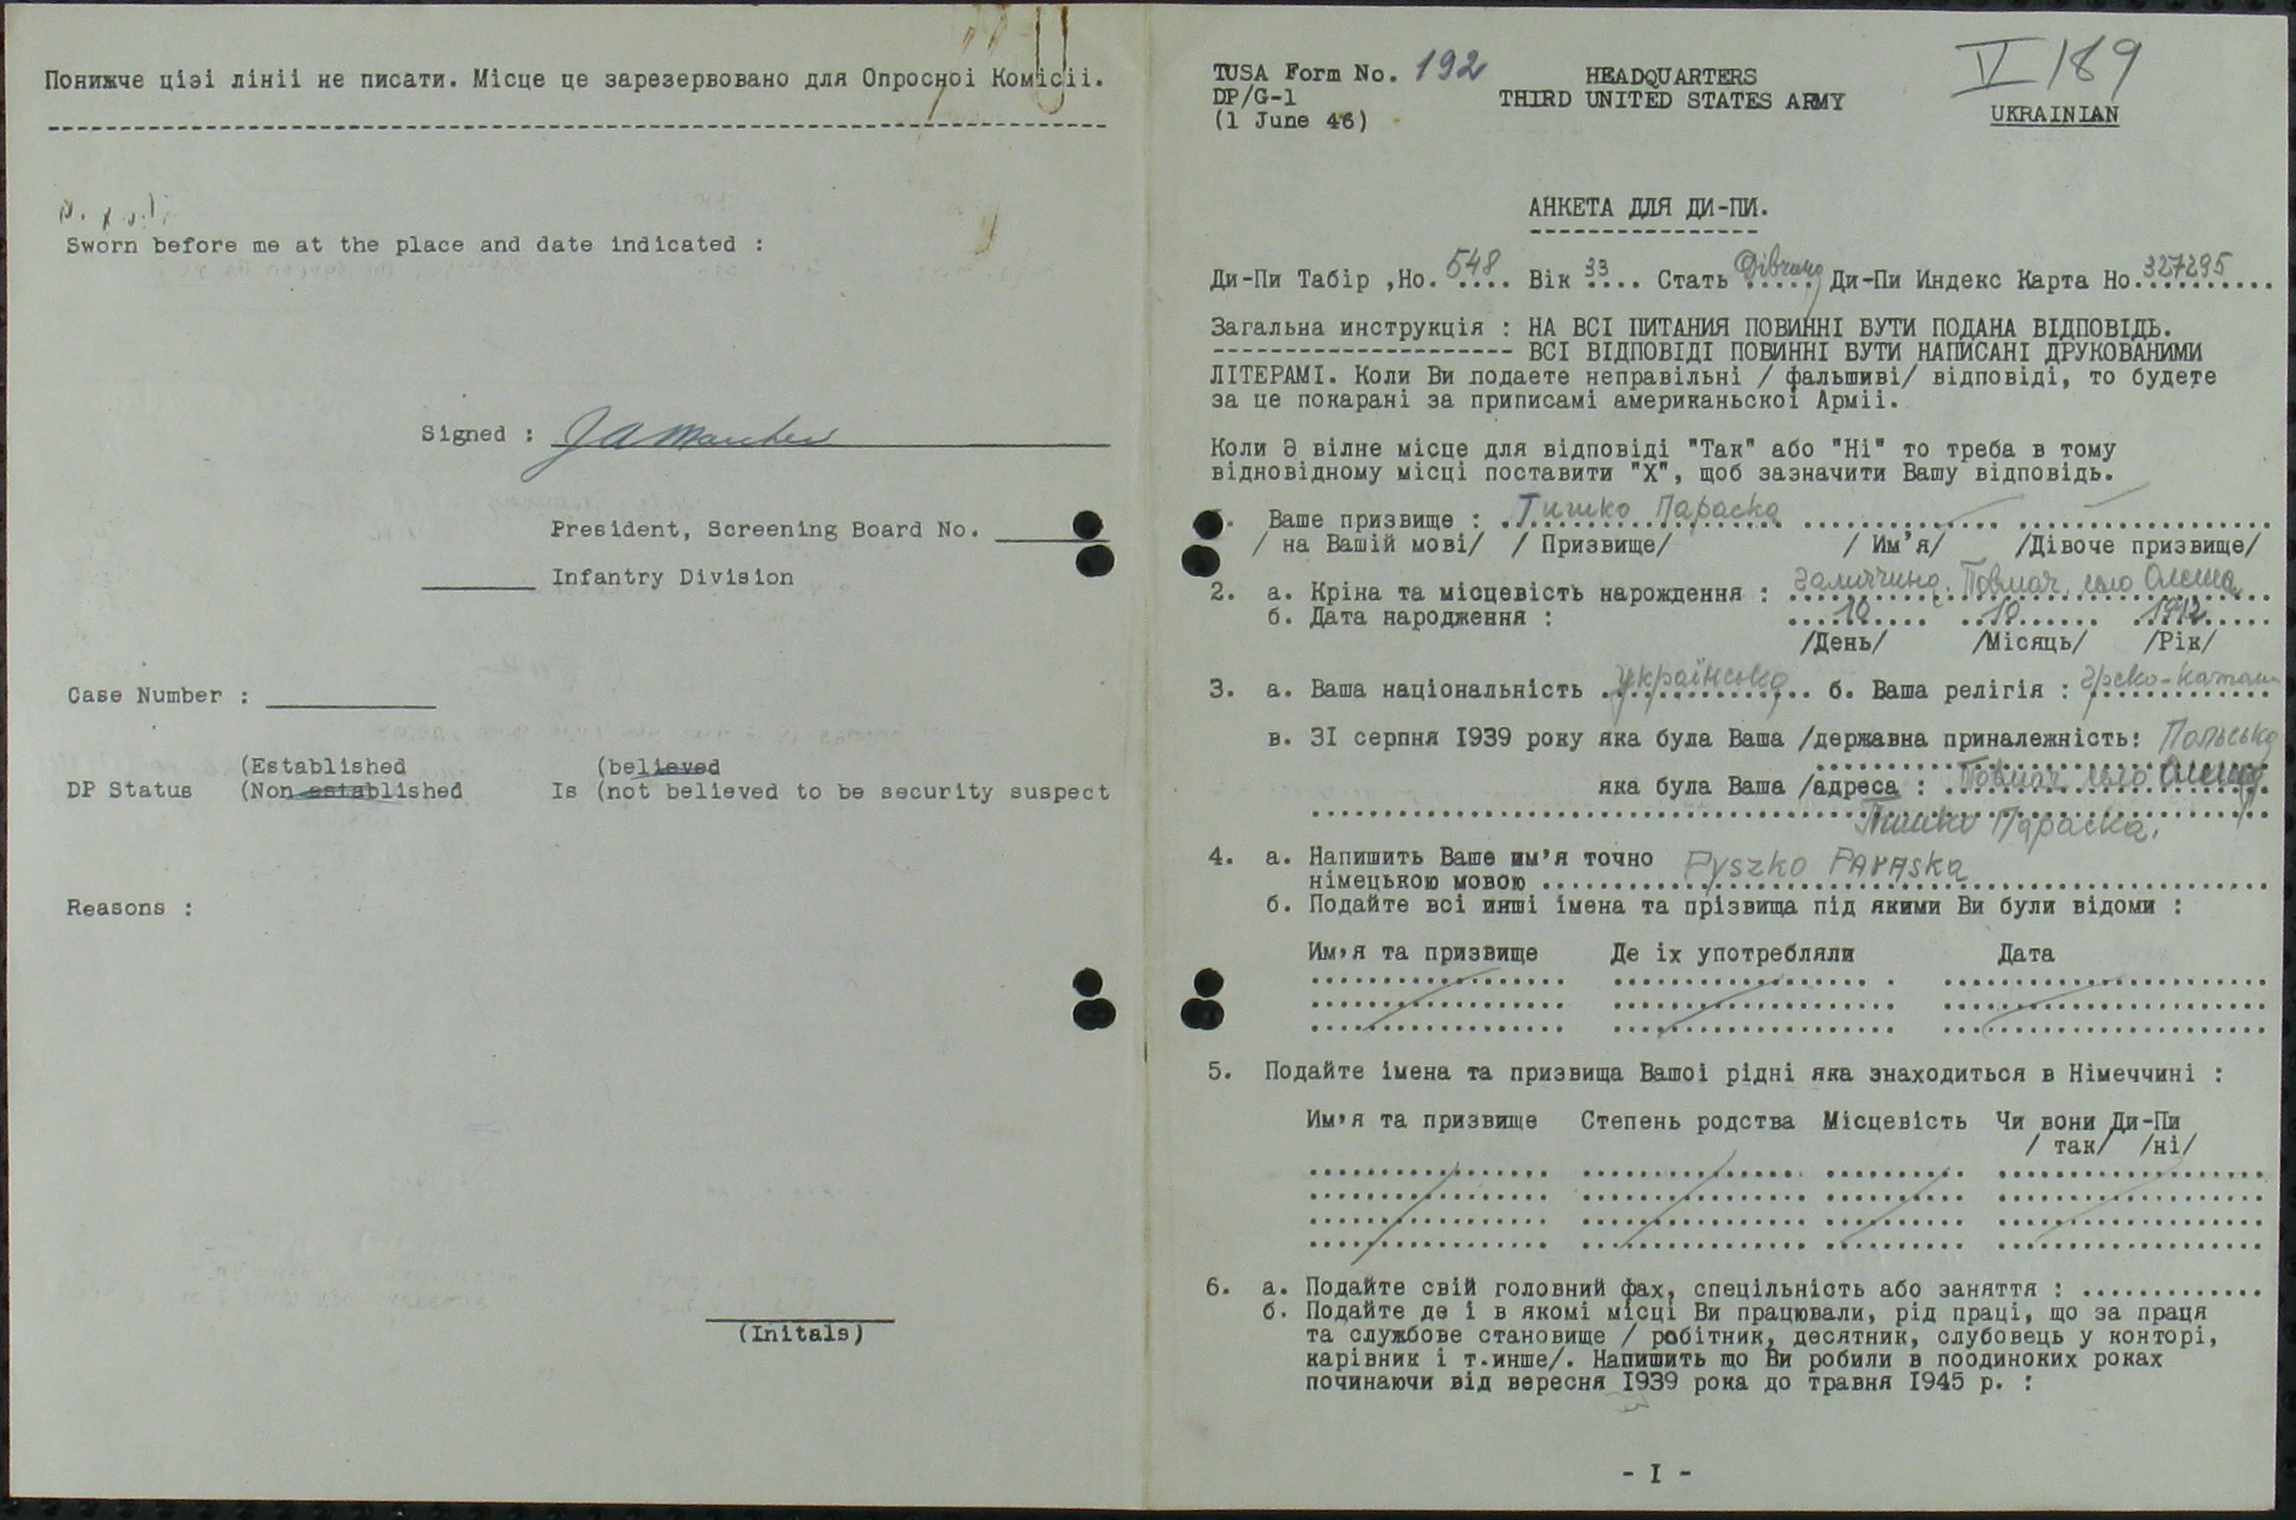 Понижче цізі лініі не писати. Місце це зарезервовано для Опросноі Комісіі.
Sworn before me at the place and date indicated :
Signed :
President, Screening Board No.
Infantry Division
Case Number :
(Established (believed
DP Status (Non established Is (not believed to be security suspect
Reasons :
(Initals)
TUSA Form No. 192 HEADQUARTERS V 189
DP/G-1 THIRD UNITED STATES ARMY UKRAINIAN
(1 June 46)
АНКЕТА ДЛЯ ДИ-ПИ.
Ди-Пи Табір ,Но. 548 Вік 33 Стать Дівчина Ди-Пи Индекс Карта Но. 327295
Загальна инструкція : НА ВСІ ПИТАНИЯ ПОВИННІ БУТИ ПОДАНА ВІДПОВІДЬ.
ВСІ ВІДПОВІДІ ПОВИННІ БУТИ НАПИСАНІ ДРУКОВАНИМИ
ЛІТЕРАМІ. Коли Ви подаете неправільні / фальшиві/ відповіді, то будете
за це покарані за приписамі американьскоі Арміі.
Коли Э вілне місце для відповіді "Так" або "Ні" то треба в тому
відновідному місці поставити "Х", щоб зазначити Вашу відповідь.
Ваше призвище : Пишко Параска
/ на Вашій мові/ / Призвище/ / Им'я/ /Дівоче призвище/
2. а. Кріна та місцевість нарождення : Галиччина, Товмач, село Олеша
б. Дата народження : 10 10 1912
/День/ /Місяць/ /Рік/
3. а. Ваша національність українська б. Ваша религія : греко-катол
в. 31 серпня 1939 року яка була Ваша /державна приналежність: Польська
яка була Ваша /адреса : Товмач село Олеша
Пишко Параска.
4. а. Напишить Ваше им'я точно
німецькою мовою Pyszko PArASka
б. Подайте всі инші імена та прізвища під якими Ви були відоми :
Им,я та призвище Де іх употребляли Дата
5. Подайте імена та призвища Вашоі рідні яка знаходиться в Німеччині :
Им,я та призвище Степень родства Місцевість Чи вони Ди-Пи
/ так/ /ні/
6. а. Подайте свій головний фах, спецільність або заняття :
б. Подайте де і в якомі місці Ви працювали, рід праці, що за праця
та службове становище / робітник, десятник, слубовець у конторі,
карівник і т.инше/. Напишить що Ви робили в поодиноких роках
починаючи від вересня 1939 рока до травня 1945 р. :
- I -